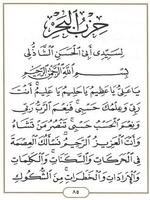 حِزْبُ الْبَحْرِ
لِسَيِّدِي أَبِي الْحَسَنِ الشَّاذُلِي
بِسْمِ اللَّهِ الرَّحْمَنِ الرَّحِيمِ
يَا عَلِيُّ يَا عَظِيمُ يَا حَلِيمُ يَا عَلِيمُ أَنْتَ
رَبِّي وَعِلْمُكَ حَسْبِي فَنِعْمَ الرَّبُّ رَبِّي
وَنِعْمَ الْحَسْبُ حَسْبِي تَنْصُرُ مَنْ تَشَاءُ
وَأَنْتَ الْعَزِيزُ الرَّحِيمُ نَسْأَلُكَ الْعِصْمَةَ
فِي الْحَرَكَاتِ وَالسَّكَنَاتِ وَالْكَلِمَاتِ
وَالْإِرَادَاتِ وَالْخَطَرَاتِ مِنَ الشُّكُوكِ
٨٥